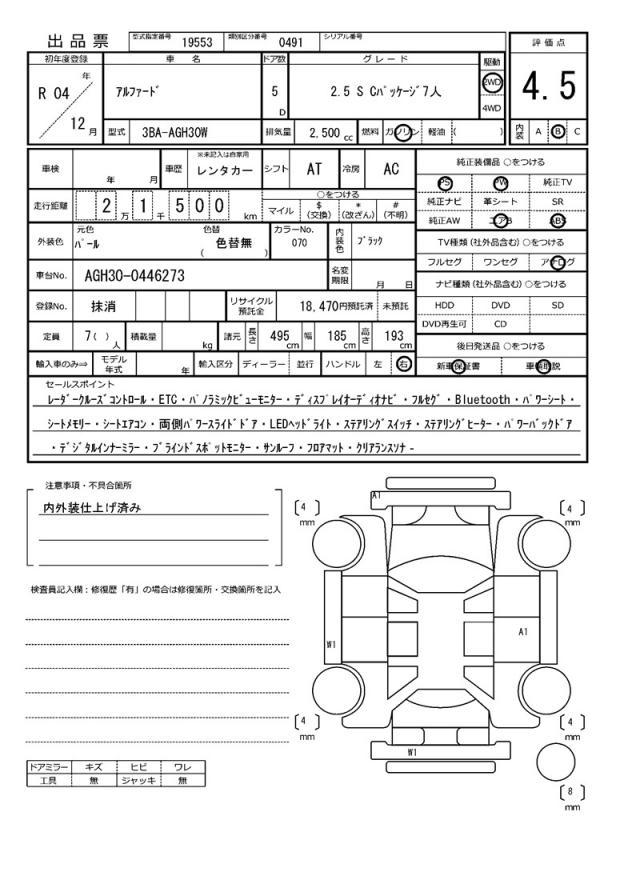 出品票 型式指定番号 19553 類別区分番号 0491 シリアル番号
初年度登録 車名 ドア数 グレード 駆動 評価点
R 04 年 アルファード 5 D 2.5 S Cパッケージ7人 2WD 4.5
4WD
12 月 型式 3BA-AGH30W 排気量 2,500 cc 燃料 ガソリン 軽油 ( ) 内装 A B C
車検 年 月 車歴 ※未記入は自家用 レンタカー シフト AT 冷房 AC 純正装備品 ○をつける
PS PW 純正TV
走行距離 2 万 1 千 5 0 0 km ○をつける 純正ナビ 革シート SR
マイル $ (交換) * (改ざん) # (不明) 純正AW エアB ABS
外装色 元色 パール 色替 色替無 ( ) カラーNo. 070 内装色 ブラック TV種類 (社外品含む) ○をつける
フルセグ ワンセグ アナログ
車台No. AGH30-0446273 名変期限 月 日 ナビ種類 (社外品含む) ○をつける
登録No. 抹消 リサイクル預託金 18,470円預託済 未預託 HDD DVD SD
DVD再生可 CD
定員 7( ) 人 積載量 kg 諸元 長さ 495 cm 幅 185 cm 高さ 193 cm 後日発送品 ○をつける
輸入車のみ⇒ モデル年式 年 輸入区分 ディーラー 並行 ハンドル 左 右 新車保証書 車輌取説
セールスポイント
レーダークルーズコントロール・ETC・パノラミックビューモニター・ディスプレイオーディオナビ・フルセグ・Bluetooth・パワーシート・
シートメモリー・シートエアコン・両側パワースライドドア・LEDヘッドライト・ステアリングスイッチ・ステアリングヒーター・パワーバックドア
・デジタルインナーミラー・ブラインドスポットモニター・サンルーフ・フロアマット・クリアランスソナー
注意事項・不具合箇所
内外装仕上げ済み
検査員記入欄：修復歴「有」の場合は修復箇所・交換箇所を記入
A1
[ 4 ] mm [ 4 ] mm
W1 A1
[ 4 ] mm [ 4 ] mm
W1
[ 8 ] mm
ドアミラー キズ ヒビ ワレ
工具 無 ジャッキ 無